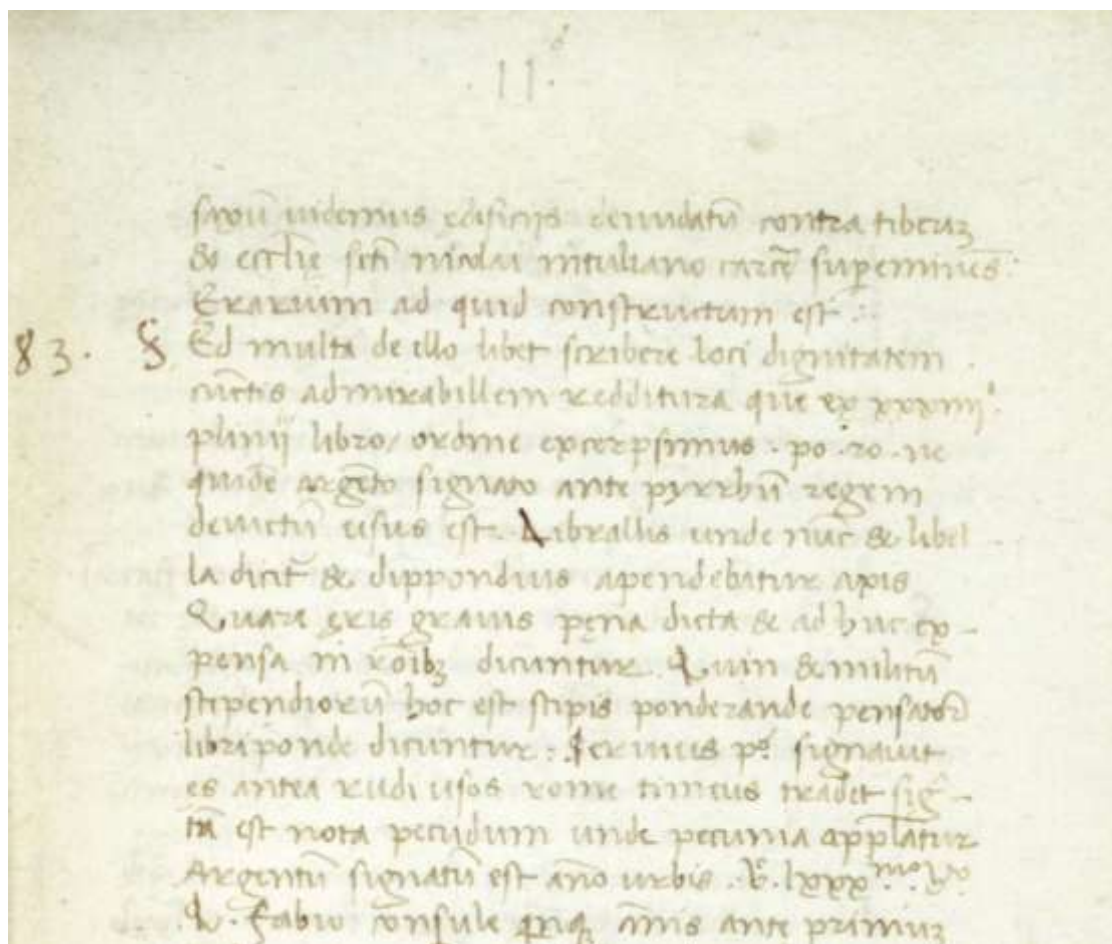 11.
saxũ uidemus edificijs denudatũ contra tiberiʒ
& ecclīe scti nicolai intuliano carcẽ supeminẽs.
Erarium ad quid constructum est :
83. § Ed multa de illo libet scribere loci dignitatem
cũctis admirabillem redditura que ex xxxiiiᵒ.
plinij libro/ ordine excerpsimus . po . ro . ne
quidẽ argẽto signato ante pyrrhũ regem
deuictũ usus est. Librallis unde nũc & libel
la dicit̃ & dippondius apendebatur axis
Quare ęris grauis pęna dicta & ad huc ex-
pensa in rõibʒ dicuntur. Quin & militũ
stipendiorũ hoc est stipis ponderande pensator̃
libriponde dicuntur : seruius pº. signauit
es antea rudi usos rome timeus tradet sig̃-
tã est nota pecudum unde pecunia appl̃atur
Argentũ signatũ est año urbis . vº. lxxxᵐᵒ. vº.
Q. Fabio consule qnqʒ annis ante primuʒ